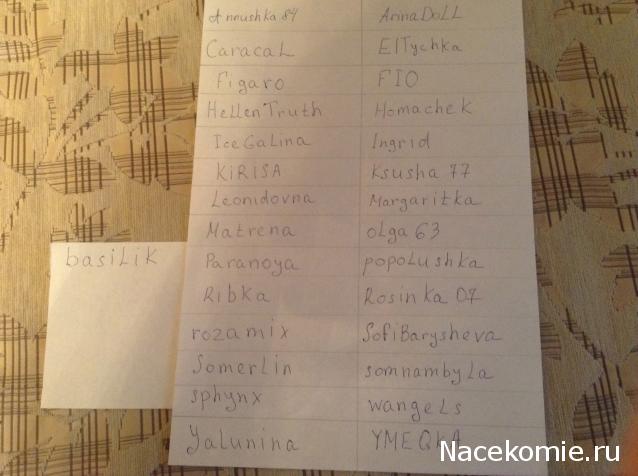 Annushka 84 AnnaDoLL
CaracaL ElTychka
Figaro FIO
HellenTruth Homachek
IceGaLina Ingrid
KiRISA Ksusha 77
Leonidovna Margaritka
Matrena olga 63
basiLiK
Paranoya popoLushka
Ribka Rosinka 07
rozamix SofiBarysheva
SomerLin somnambyLa
sphynx wangeLs
Yalunina YMEQKA
Nacekomie.ru